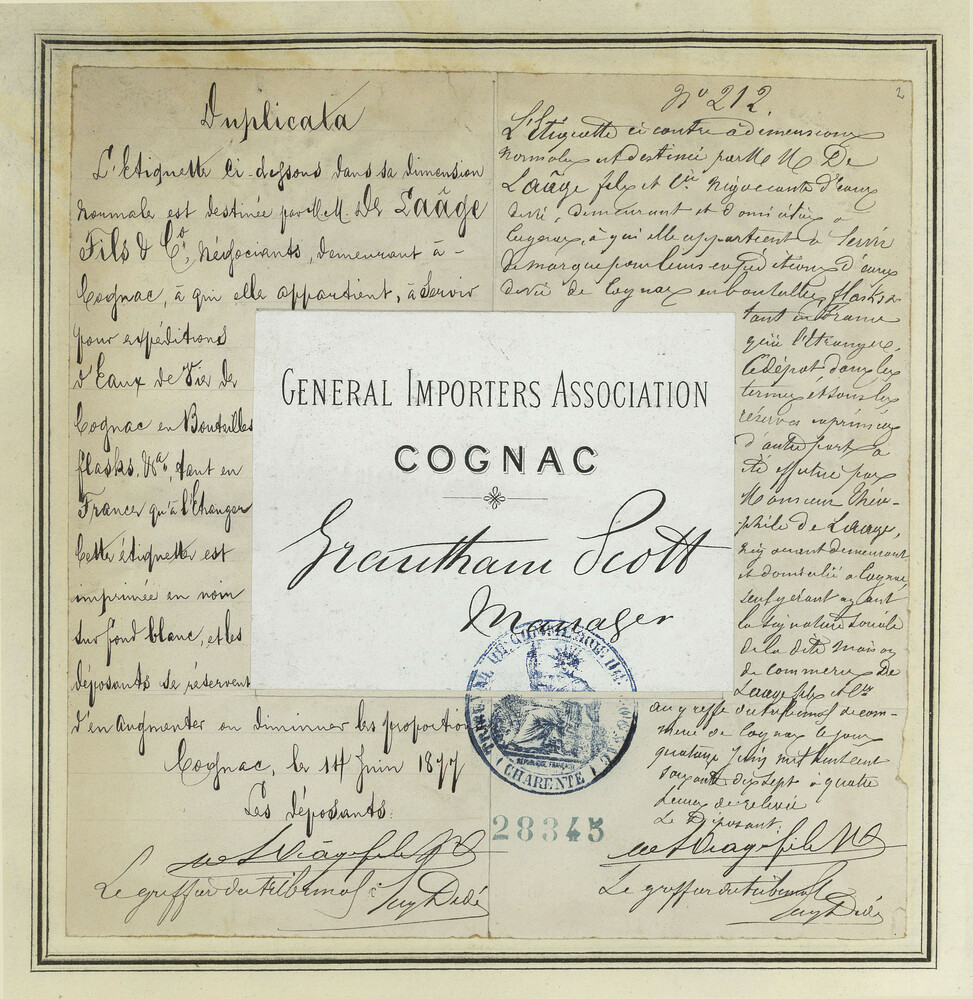 Duplicata
L'Etiquette Ci-dessous dans sa dimension
normale est destinée par M.M. De Laâge
Fils & Co, Négociants, demeurant à -
Cognac, à qui elle appartient, à servir
pour expéditions
d'Eaux de Vie de
Cognac en Bouteilles
flasks, &a, tant en
France qu'à l'Etranger
Cette étiquette est
imprimée en noir
sur fond blanc, et les
déposants se réservent
d'en augmenter ou diminuer les proportions
Cognac, le 14 Juin 1877
Les déposants:
Le greffier du tribunal
GENERAL IMPORTERS ASSOCIATION
COGNAC
Grantham Scott
Manager
TRIBUNAL DE COMMERCE DE COGNAC
REPUBLIQUE FRANÇAISE
(CHARENTE)
28345
2
No 212
L'Etiquette ci contre à dimensions
normales est destinée par M M De
Laâge fils et Cie Négociants d'eaux
de vie, demeurant et domiciliés à
Cognac, à qui elle appartient à servir
de marque pour leurs expéditions d'eaux
de vie de Cognac en bouteilles, flasks &a
tant en France
qu'à l'Etranger,
Ce dépôt dans les
termes et sous les
réserves exprimées
d'autre part a
été effectué par
Monsieur Théo-
-phile de Laage,
négociant demeurant
et domicilié à Cognac
seul gérant ayant
la signature sociale
de la dite maison
de commerce De
Laage fils & Cie
au greffe du tribunal de com-
merce de Cognac le jour
quatorze Juin mil huit cent
soixante dix sept à quatre
heures de relevée
Le Déposant:
Le greffier du tribunal